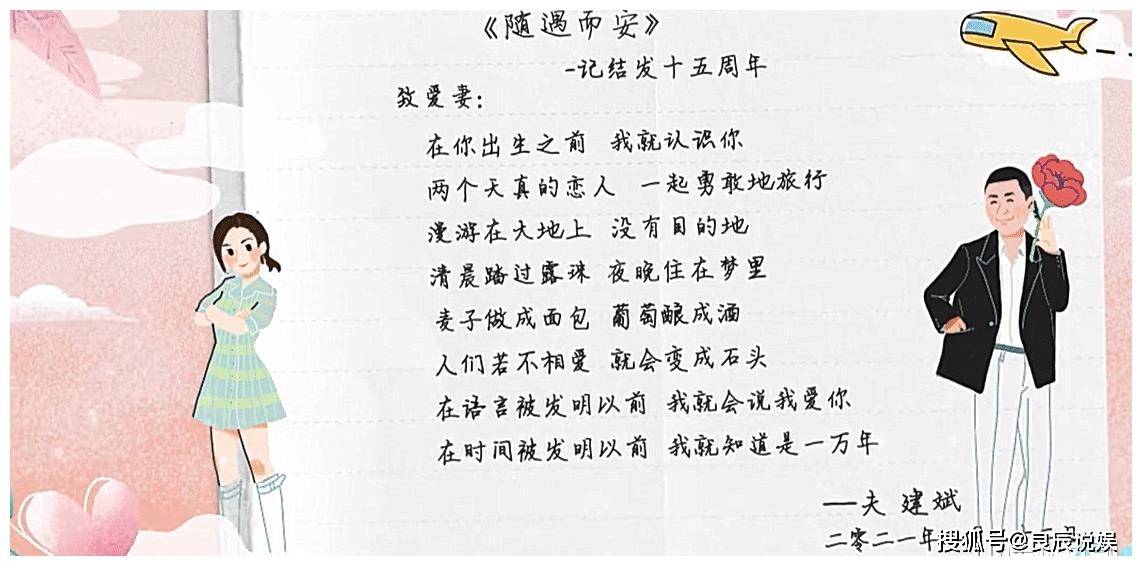 《随遇而安》
-记结发十五周年
致爱妻：
在你出生之前 我就认识你
两个天真的恋人 一起勇敢地旅行
漫游在大地上 没有目的地
清晨踏过露珠 夜晚住在梦里
麦子做成面包 葡萄酿成酒
人们若不相爱 就会变成石头
在语言被发明以前 我就会说我爱你
在时间被发明以前 我就知道是一万年
——夫 建斌
二零二一年
搜狐号@良辰说娱